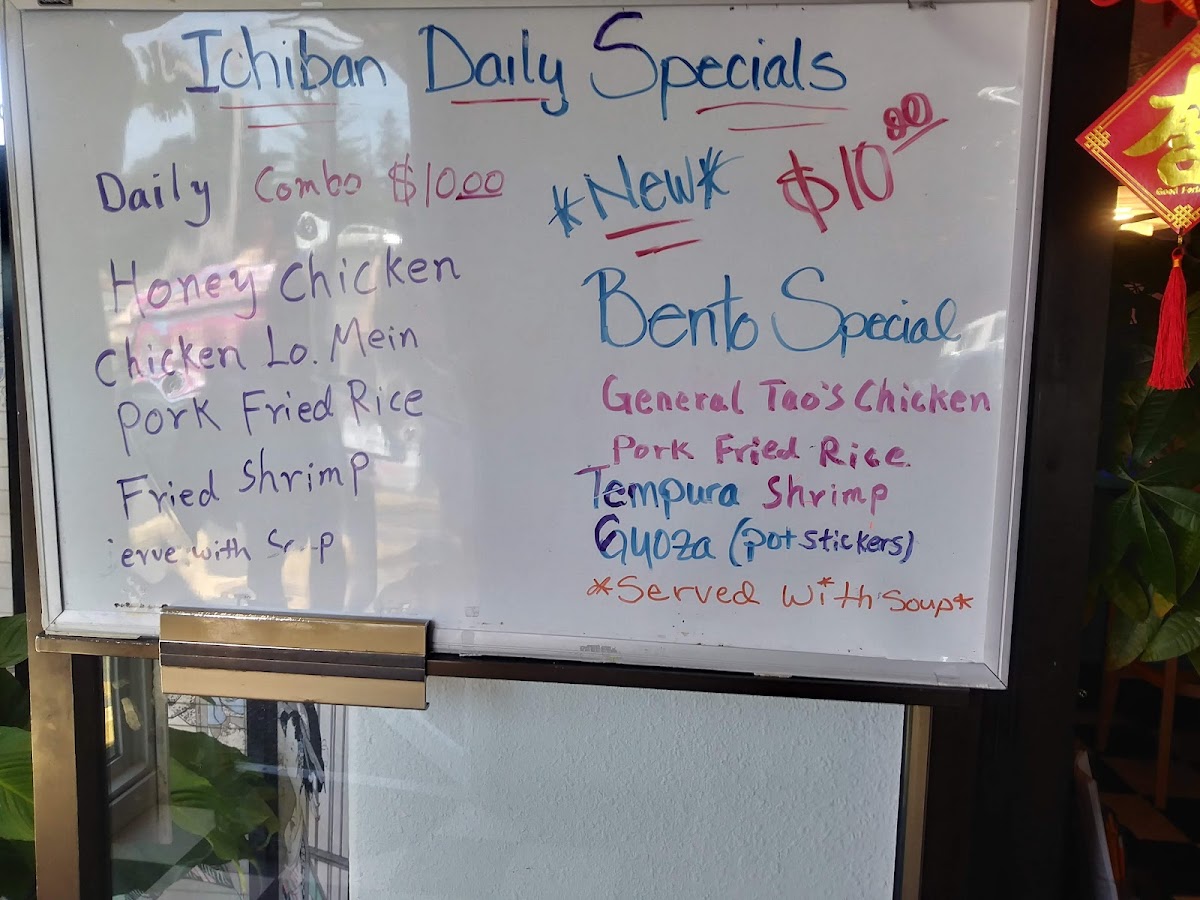 Ichiban Daily Specials
Daily Combo $10.00
Honey Chicken
Chicken Lo. Mein
Pork Fried Rice
Fried Shrimp
erve with
*New* $10.00
Bento Special
General Tao's Chicken
Pork Fried Rice
Tempura Shrimp
Gyoza (pot stickers)
*Served with Soup*
Good